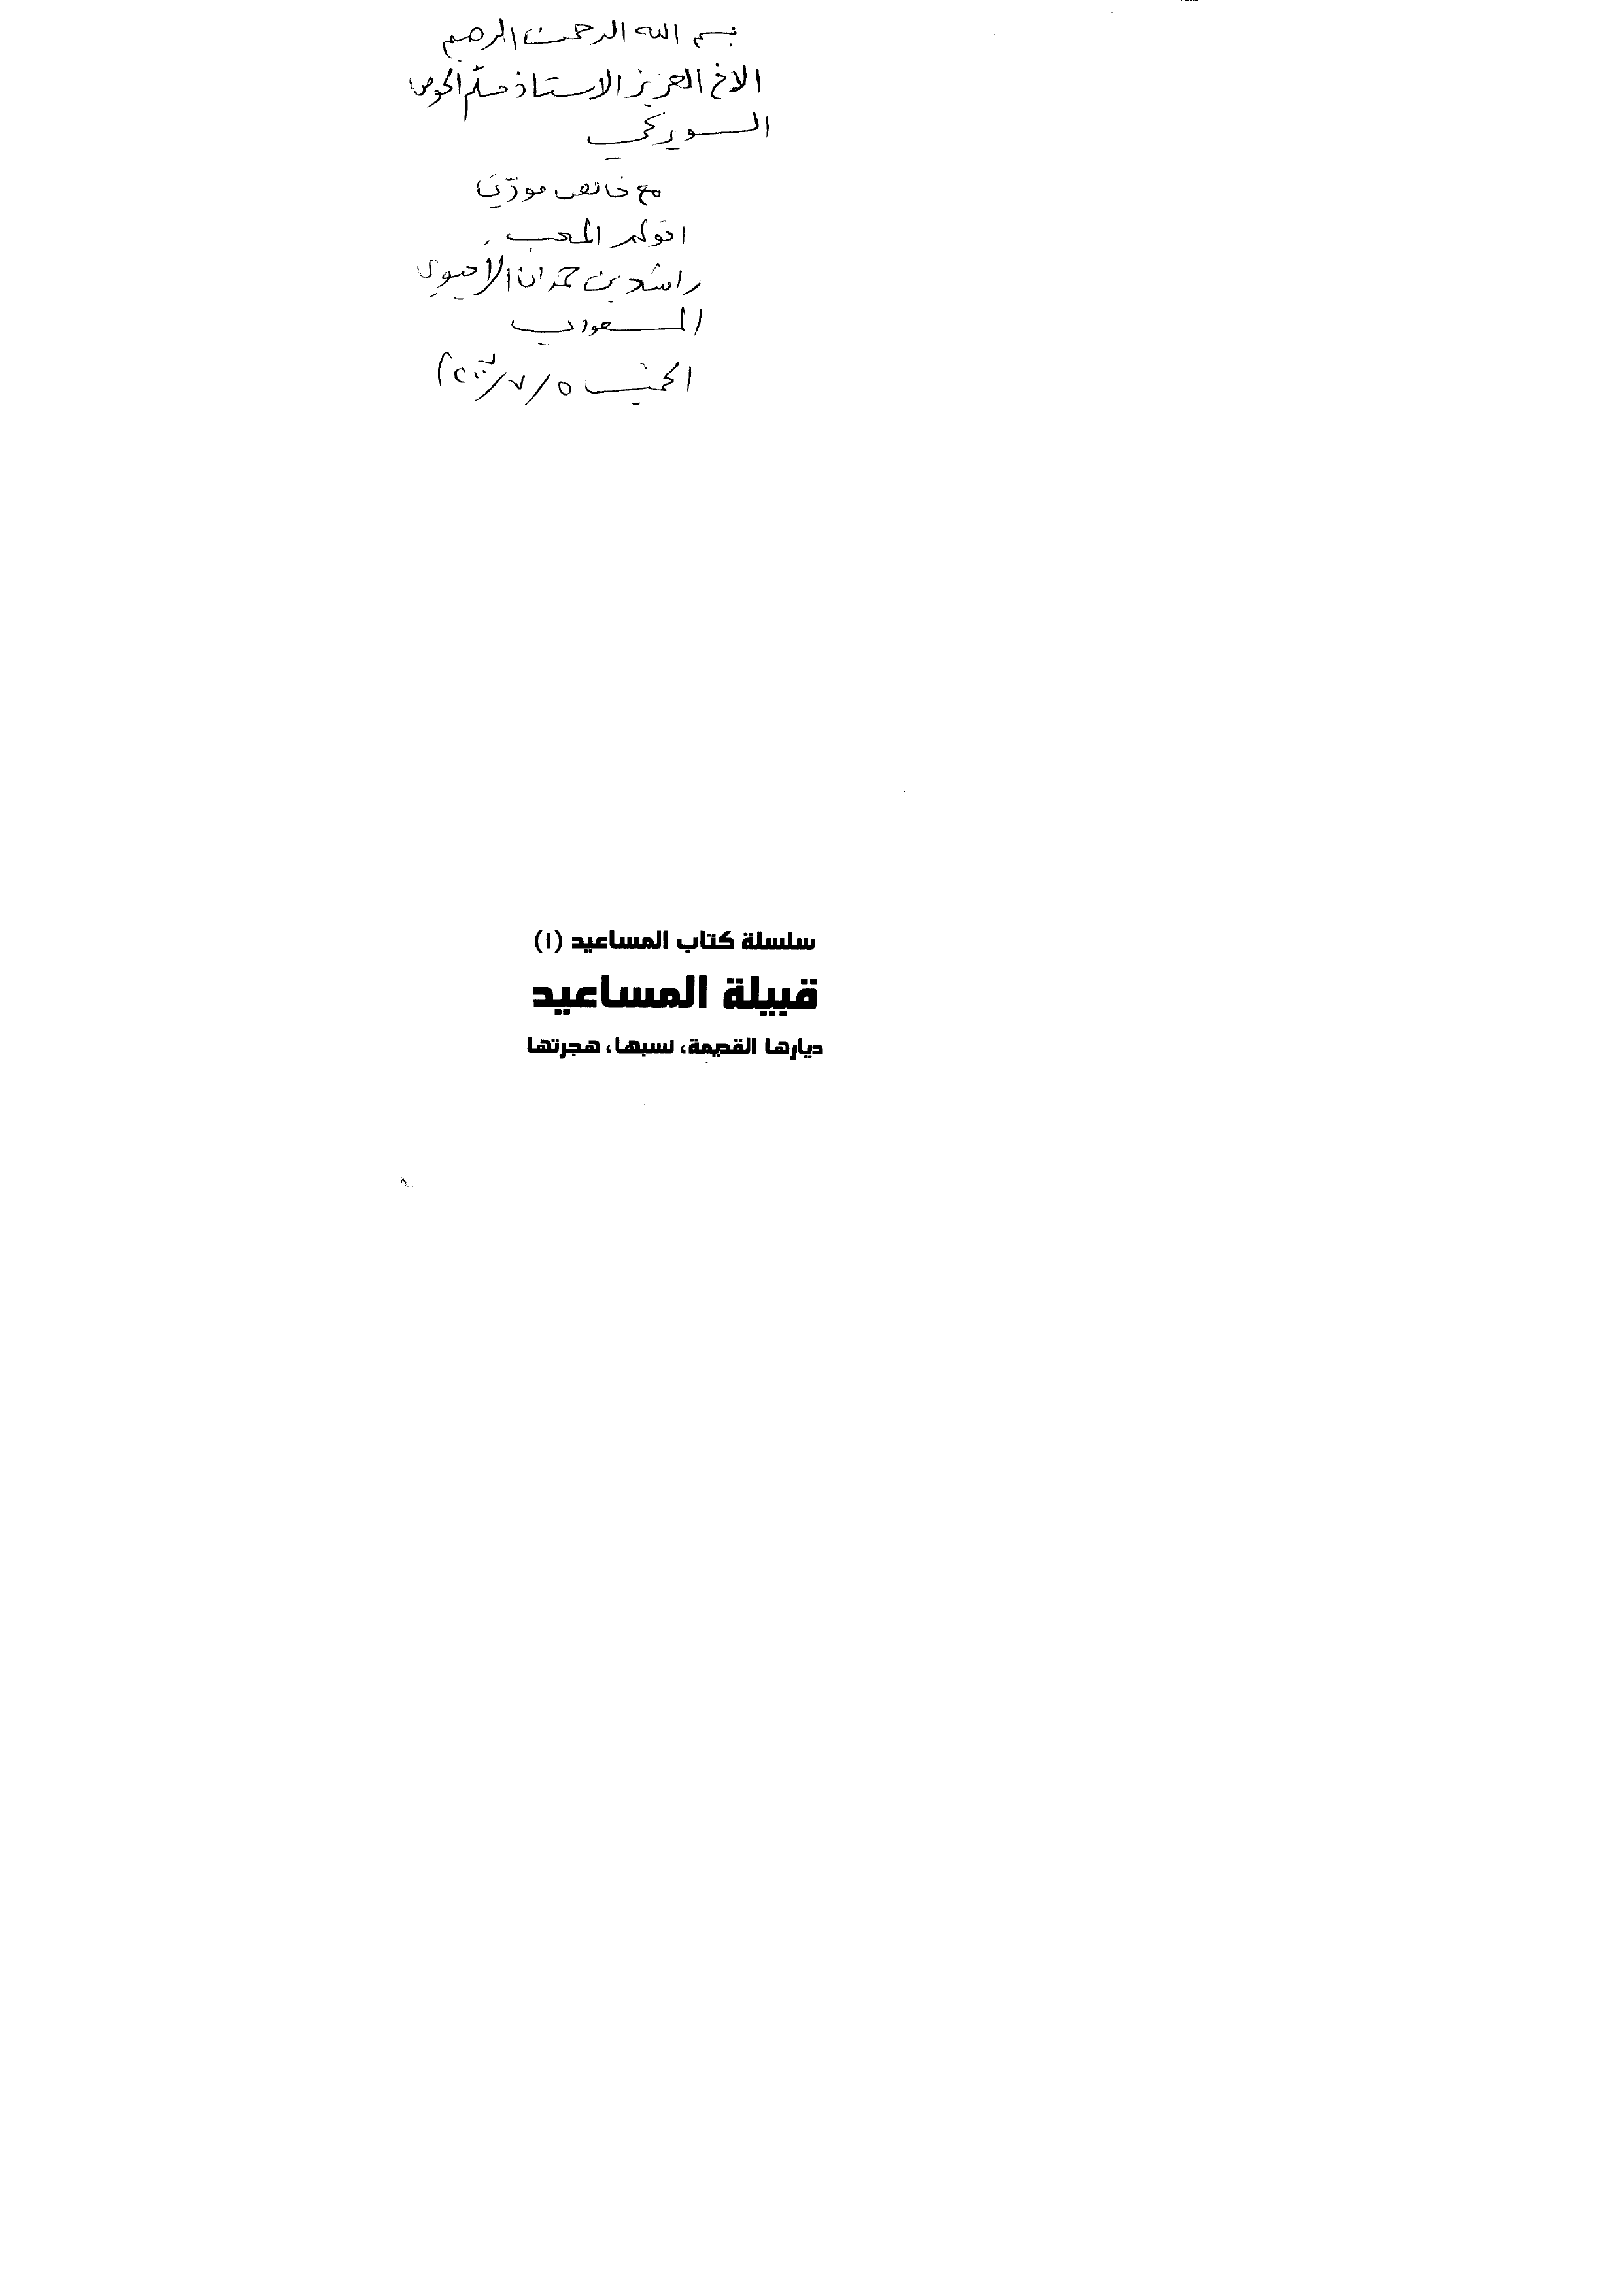 بسم الله الرحمن الرحيم
الاخ العزيز الاستاذ مسلّم
السويركي
مع خالص مودّتي
اخوكم المحب
راشد بن حمدان الأحيوي
المسعودي
الخميس ٥/٧/
سلسلة كتاب المساعيد (١)
قبيلة المساعيد
ديارها القديمة، نسبها، هجرتها